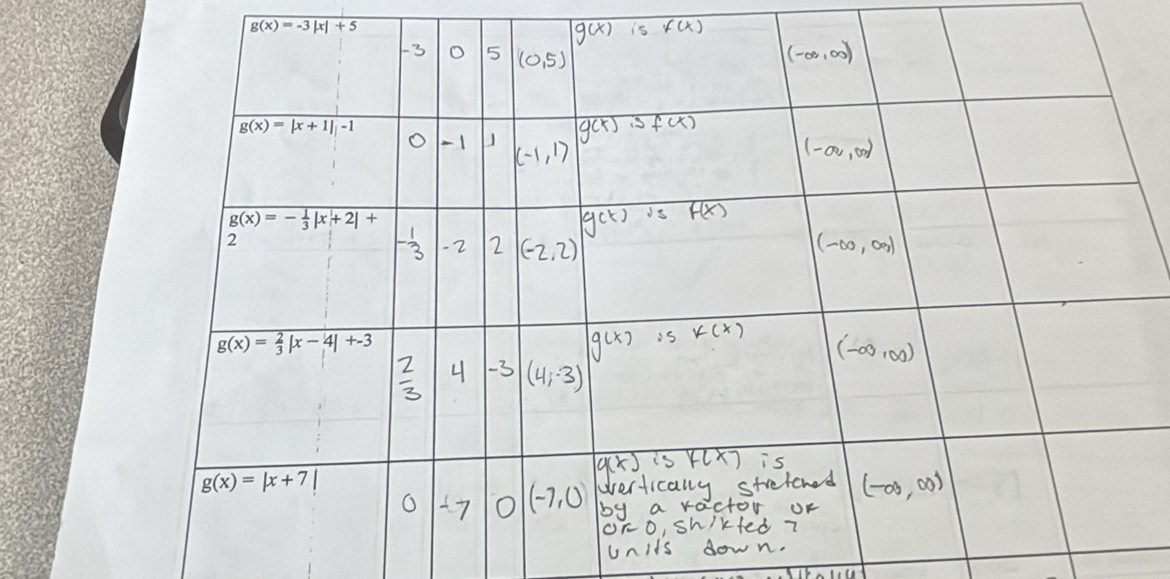 g(x) = -3|x| + 5
-3 0 5 (0,5) g(x) is f(x) (-∞,∞)
g(x) = |x + 1| -1
0 -1 1 (-1,1) g(x) is f(x) (-∞,∞)
g(x) = -1/3|x + 2| +
2
-1/3 -2 2 (-2,2) g(x) is f(x) (-∞,∞)
g(x) = 2/3|x - 4| + -3
2/3 4 -3 (4,-3) g(x) is f(x) (-∞,∞)
g(x) = |x + 7|
0 -7 0 (-7,0) g(x) is f(x) is
vertically stretched (-∞,∞)
by a factor of
of 0, shifted 7
units down.